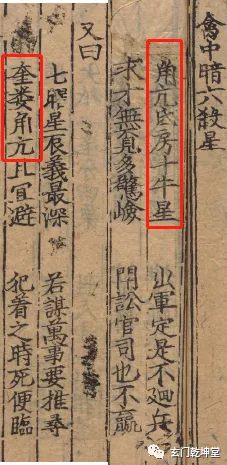 禽中暗六殺星
角亢氐房斗牛星 出軍定是不廻兵
求才無覓多驚嶮 鬥訟官司也不贏
又曰
七煞星辰義最深 若謀萬事要推尋
奎娄角亢且宜避 犯着之時死便臨
玄门乾坤堂